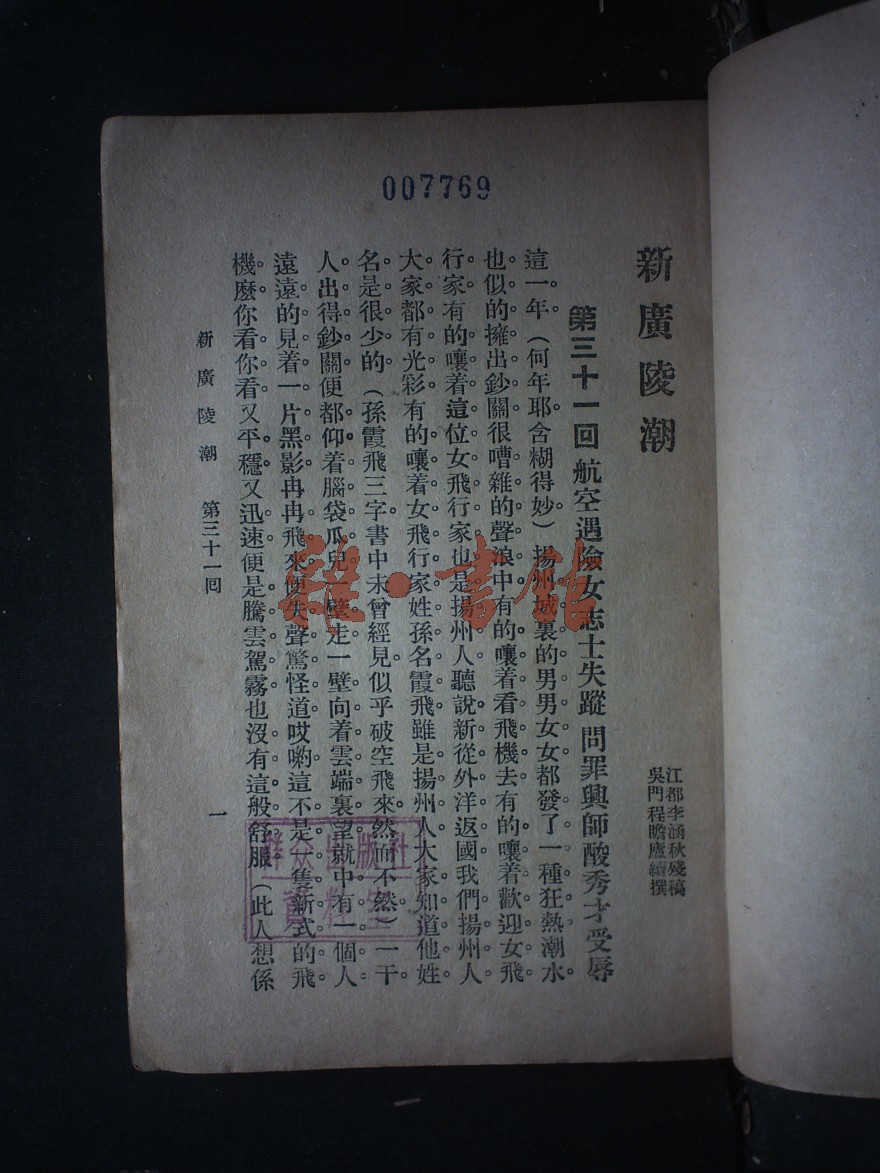 007769
新廣陵潮
江都李涵秋殘稿
吳門程瞻廬續撰
第三十一回 航空遇險女志士失蹤 問罪興師酸秀才受辱
這一年。(何年耶含糊得妙)揚州城裏的男男女女都發了一種狂熱潮水
也似的擁出鈔關很嘈雜的聲浪中有的嚷着看飛機去有的嚷着歡迎女飛
行家有的嚷着這位女飛行家也是揚州人聽說新從外洋返國我們揚州人
大家都有光彩有的嚷着女飛行家姓孫名霞飛雖是揚州人大家知道他姓
名是很少的(孫霞飛三字書中未曾經見似乎破空飛來然而不然)一干
人出得鈔關便都仰着腦袋瓜兒一壁走一壁向着雲端裏望就中有一個人
遠遠的見着一片黑影冉冉飛來便失聲驚怪道哎喲這不是一隻新式的飛
機麼你看你看又平穩又迅速便是騰雲駕霧也沒有這般舒服(此人想係
新廣陵潮 第三十一回
一
雜·書館
群众出版社
資料室